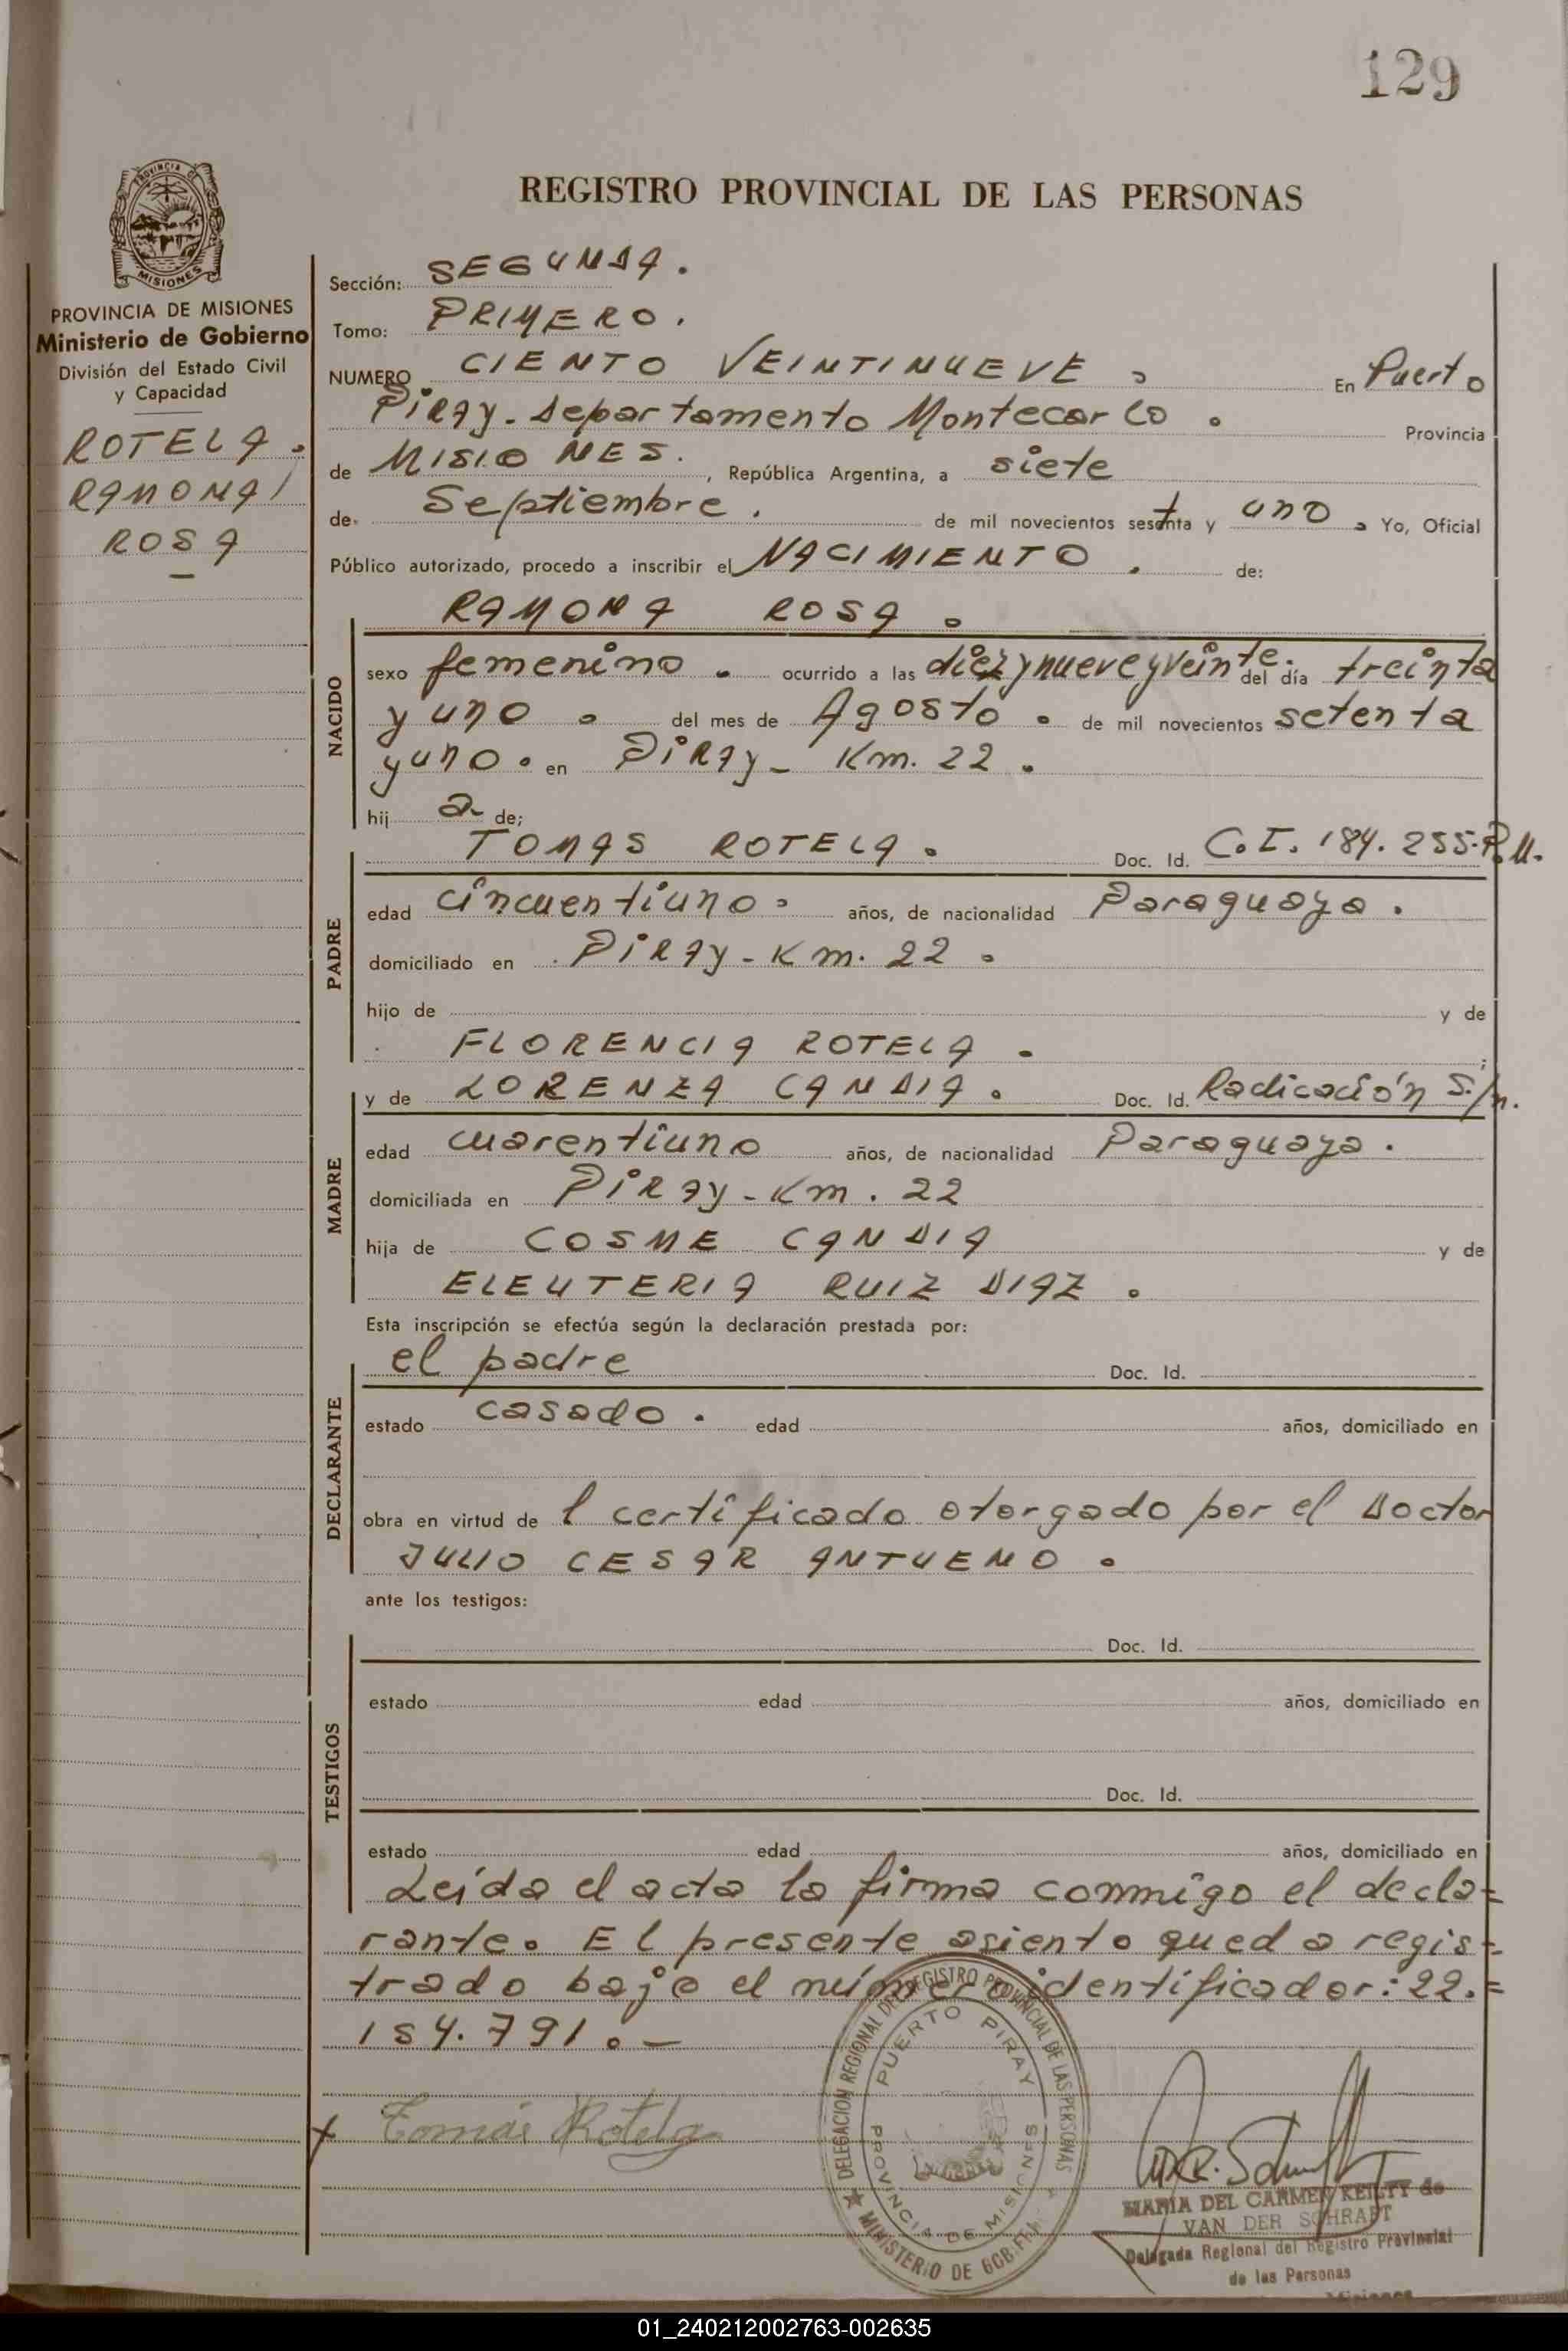 129
REGISTRO PROVINCIAL DE LAS PERSONAS
PROVINCIA DE
MISIONES
PROVINCIA DE MISIONES
Ministerio de Gobierno
División del Estado Civil
y Capacidad
ROTELA.
RAMONA
ROSA
Sección: SEGUNDA.
Tomo: PRIMERO.
NUMERO CIENTO VEINTINUEVE En Puerto
Piray. Departamento Montecarlo. Provincia
de MISIONES., República Argentina, a siete
de Septiembre. de mil novecientos setenta y uno. Yo, Oficial
Público autorizado, procedo a inscribir el NACIMIENTO. de:
NACIDO
RAMONA ROSA.
sexo femenino. ocurrido a las diez y nueve y veinte. del día treinta
y uno. del mes de Agosto. de mil novecientos setenta
y uno. en PiRAy- Km. 22.
hij a de;
PADRE
TOMAS ROTELA. Doc. Id. C.I. 184.255.P.M.
edad cincuentiuno. años, de nacionalidad Paraguaya.
domiciliado en PiRAy-Km. 22.
hijo de y de
FLORENCIA ROTELA.;
MADRE
y de LORENZA CANDIA. Doc. Id. Radicación S./n.
edad cuarentiuno años, de nacionalidad Paraguaya.
domiciliada en PiRAy-Km. 22
hija de COSME CANDIA y de
ELEUTERIA RUIZ DIAZ.
Esta inscripción se efectúa según la declaración prestada por:
DECLARANTE
el padre Doc. Id.
estado casado. edad años, domiciliado en
obra en virtud de l certificado otorgado por el Doctor
JULIO CESAR ANTUENO.
ante los testigos:
TESTIGOS
Doc. Id.
estado edad años, domiciliado en
Doc. Id.
estado edad años, domiciliado en
Leída el acta la firma conmigo el decla=
rante. El presente asiento queda regis=
trado bajo el número identificador: 22.=
154.791.-
x Tomás Rotela
DELEGACION REGIONAL DEL REGISTRO PROVINCIAL DE LAS PERSONAS
PUERTO PIRAY
PROVINCIA DE MISIONES
MINISTERIO DE GOB.
MARIA DEL CARMEN KEILTY de
VAN DER SCHRAFT
Delegada Regional del Registro Provincial
de las Personas
Misiones
01_240212002763-002635